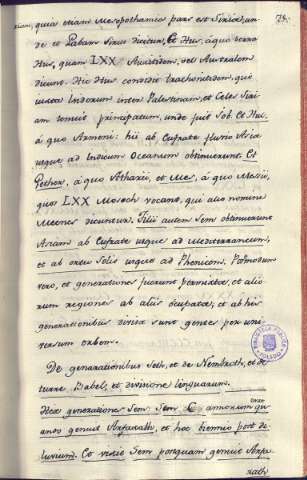 78.
riam, quia etiam Mesopothamia pars est Siriæ, un-
de et Laban Sirus dicitur, Et Hus, à quo terra
Hus, quam LXX Ausitidem, vel Australem
dicunt. Hic Hus condidit trachonitidem, qui
inter Palestinam, et Celes Siri-
am tenuit principatum, unde fuit Job. Et Hul,
à quo Armeni: hii ab Eufrate fluvio
usque ad Indicum Oceanum obtinuerunt. Et
Gether, à quo et Mes, à quo Mesii,
quos LXX Mosoch vocant, qui alio nomine
Meones dicuntur. Filii autem Sem obtinuerunt
Asiam ab Eufrate usque ad mediterraneum,
et ab ortu Solis usque ad Phenicem. Postmodum
vero, et generationes fuerunt permixtæ, et alio-
rum regiones ab aliis ocupatæ; et ab his
generationibus divisæ sunt gentes per uni-
versum orbem.
De genarationibus Seth, et de Nembroth, et de
turre Babel, et divisione linguarum.
Hæ generationes Sem. Sem C. annorum erat
quando genuit Arfaxath, et hoc biennio post di-
luvium. Et vixit Sem postquam genuit Arfa-
xath